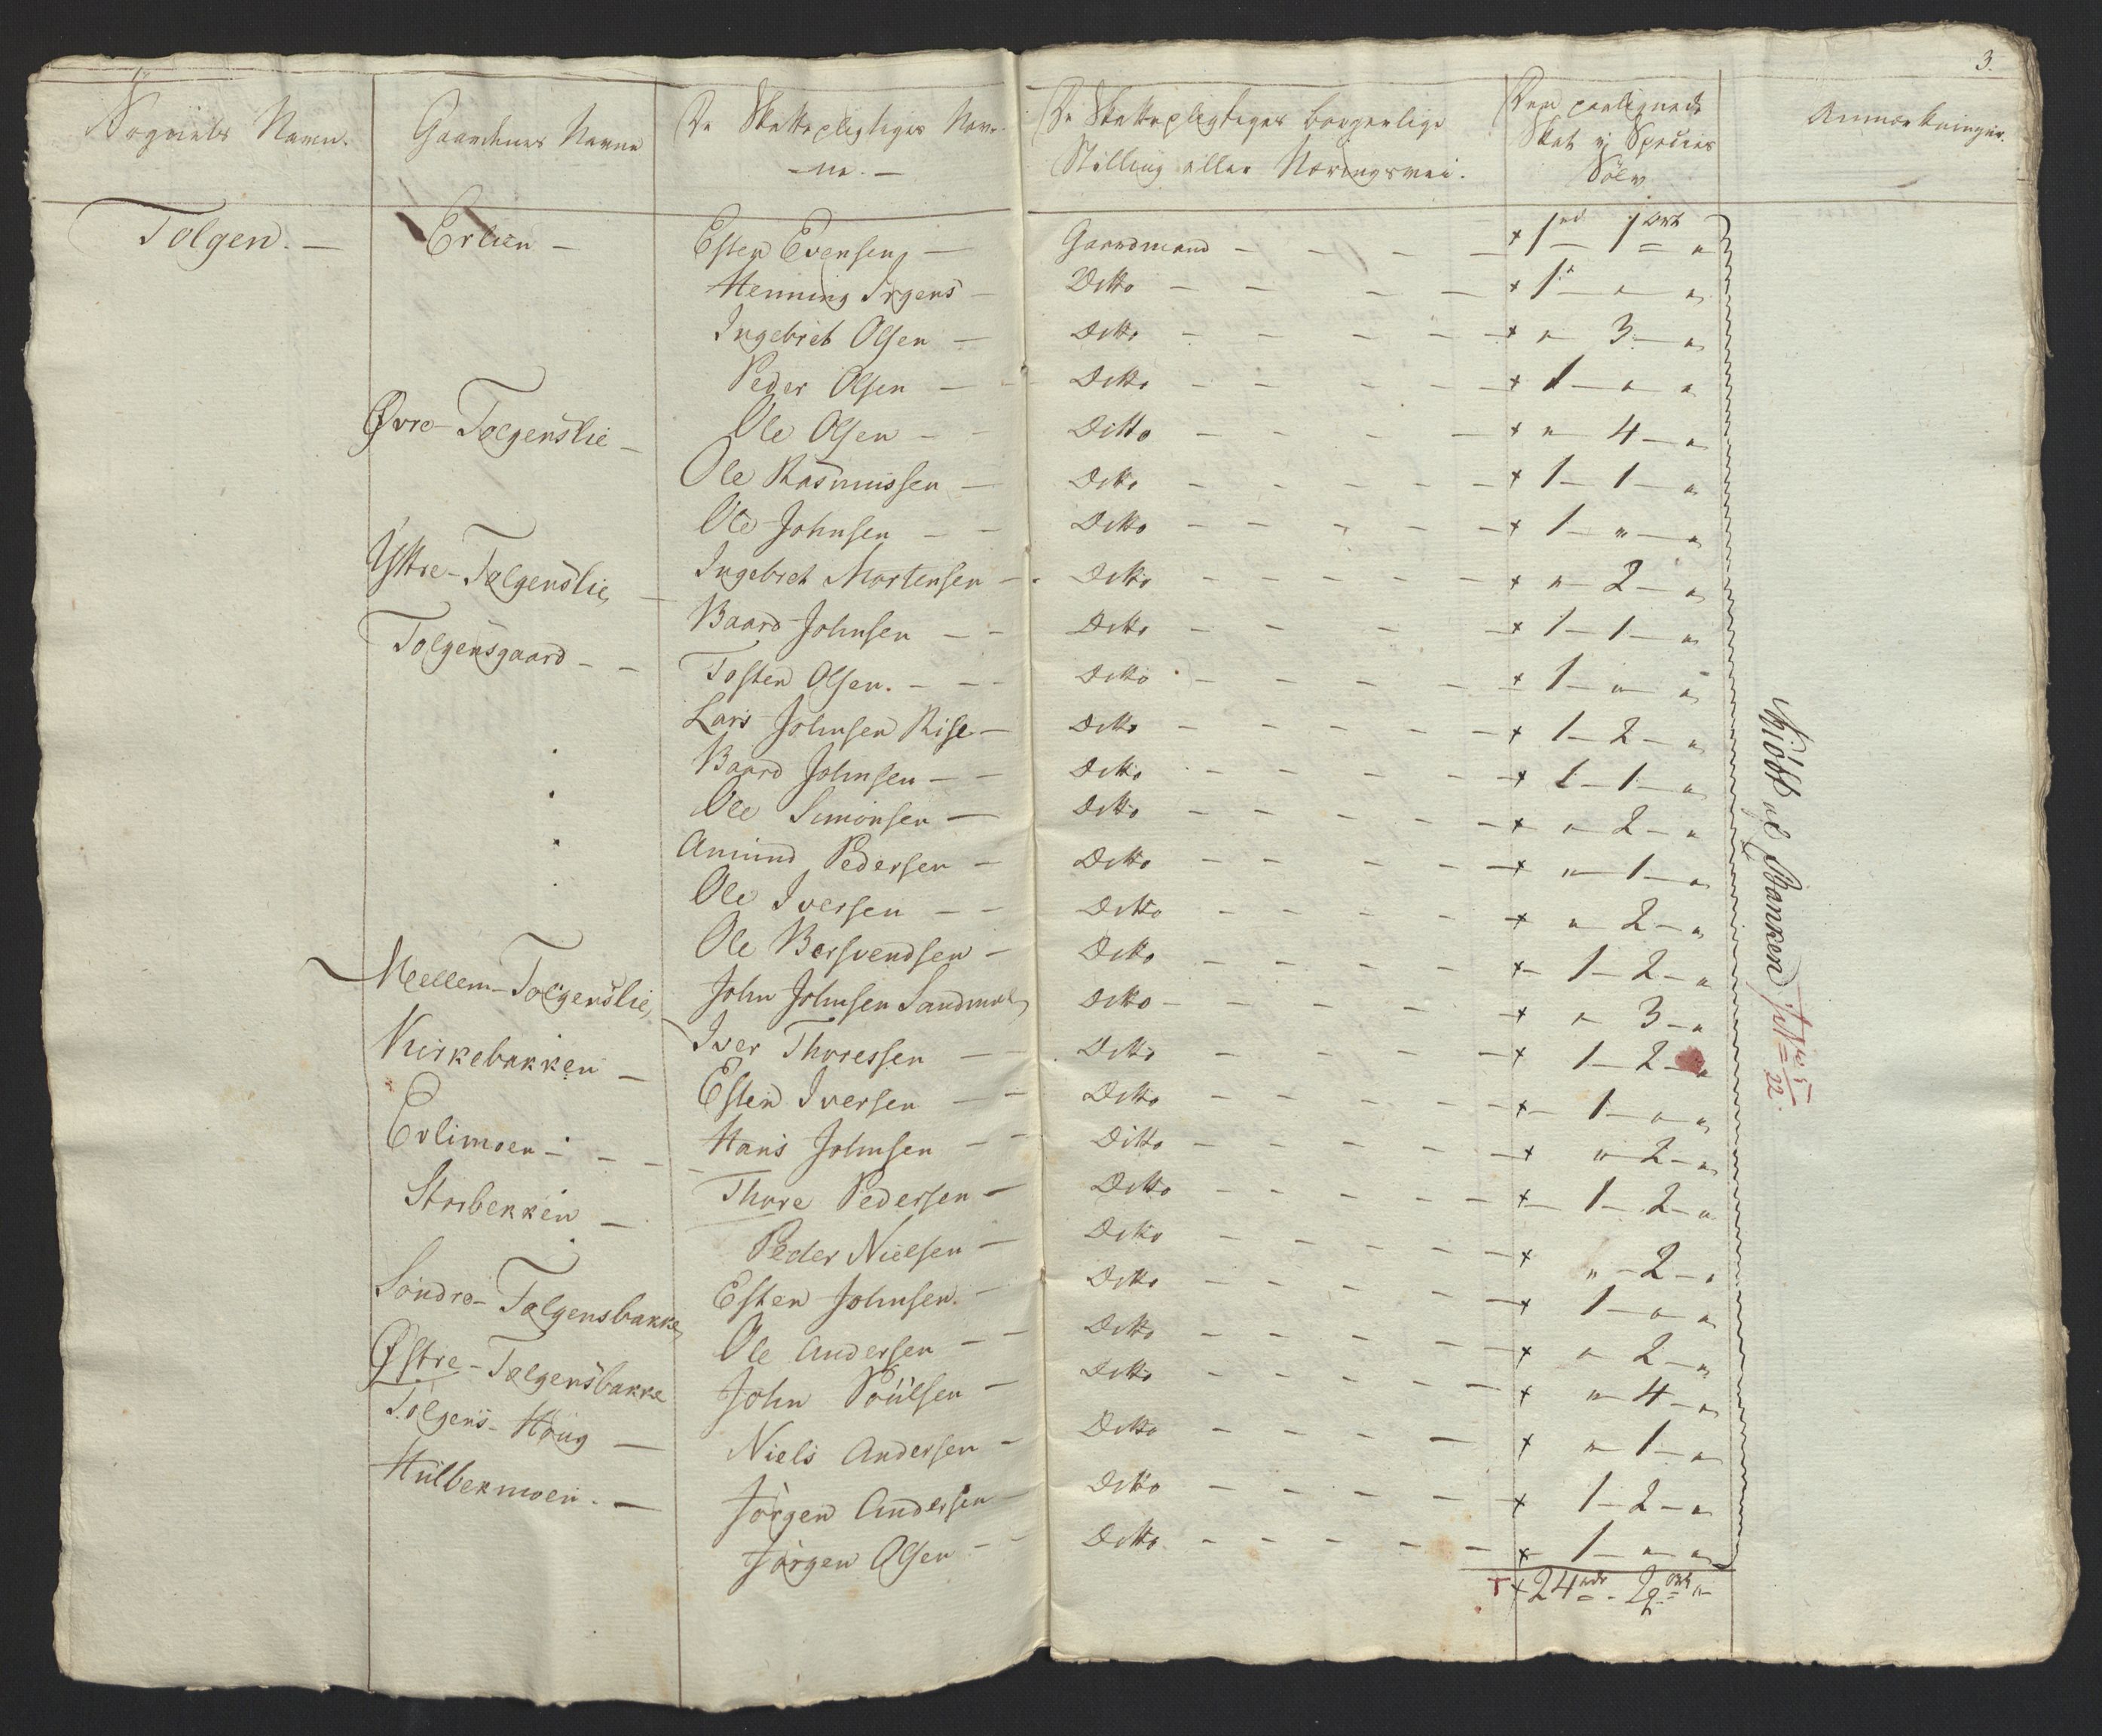 3.
Sognets Navn.
Gaardenes Navne
De Skattepligtiges Nav-
-ne. -
De Skattepligtiges borgerlige
Stilling eller Næringsvei.
Den paalignede
Skat i Species
Sölv
Anmærkninger.
Tolgen. - Erlien - Esten Evensen - Gaardmand - - - - + 1 1 ort "
Henning Irgens - Ditto - - - - + 1 " "
Ingebret Olsen - Ditto - - - - + " 3 - "
Peder Olsen - - Ditto - - - - + 1 - " "
Øvre-Tolgenslie - Ole Olsen - - Ditto - - - - + " 4 - "
Ole Rasmussen - Ditto - - - - + 1 - 1 - "
Ole Johnsen - - Ditto - - - - + 1 - " - "
Yttre-Tolgenslie - Ingebret Mortensen - Ditto - - - - + " - 2 - "
Tolgensgaard - - Baard Johnsen - - Ditto - - - - + 1 - 1 - "
Tosten Olsen. - - Ditto - - - - + 1 - " "
Lars Johnsen Rise - Ditto - - - - + 1 - 2 - "
Baard Johnsen - - Ditto - - - - + 1 - 1 - "
Ole Simonsen - Ditto - - - - + " 2 - "
Amund Pedersen - Ditto - - - - + " - 1 - "
Ole Iversen - - Ditto - - - - + " 2 - "
Ole Bersvendsen - Ditto - - - - + 1 - 2 - "
Mellem-Tolgenslie, John Johnsen Sandmoe Ditto - - - - + " 3 - "
Kirkebakken - Iver Thoressen - Ditto - - - - + 1 - 2 - "
Esten Iversen - - Ditto - - - - + 1 - " "
Erlimoen - - - Hans Johnsen - - Ditto - - - - + " 2 - "
Storbekken - Thore Pedersen - Ditto - - - - + 1 - 2 - "
Peder Nielsen - Ditto - - - - + " - 2 - "
Söndre-Tolgensbakke, Esten Johnsen. - Ditto - - - - + 1 - " "
Østre-Tolgensbakke Ole Andersen - - Ditto - - - - + " 2 - "
Tolgens-Houg - John Poulsen - Ditto - - - - + " 4 - "
Hulbekmoen. - Niels Andersen - Ditto - - - - + " 1 - "
Jörgen Andersen - Ditto - - - - + 1 - 2 - "
Jörgen Olsen - - Ditto - - - - + 1 - " "
+ 24 - 2 ort "
Banken
22.